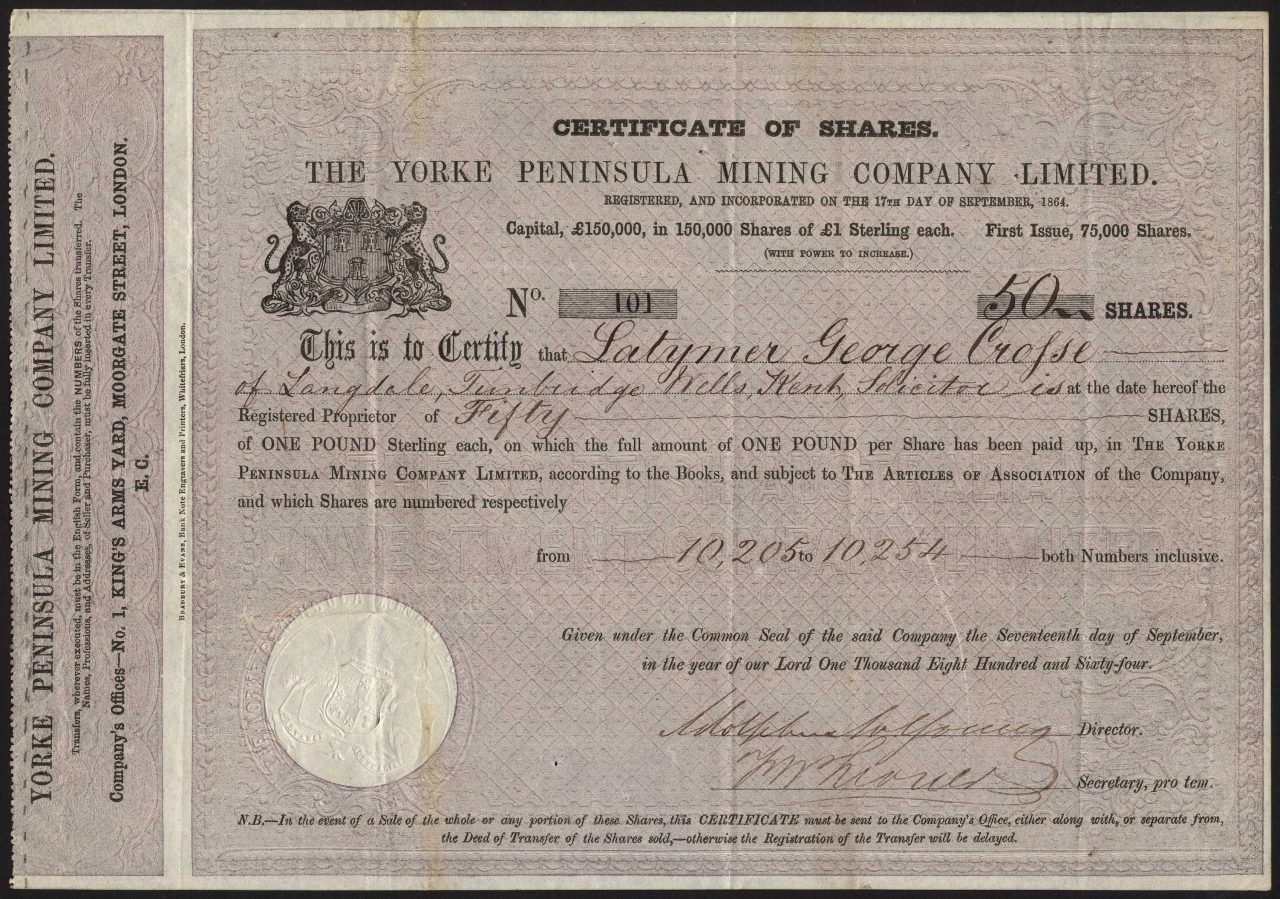 YORKE PENINSULA MINING COMPANY LIMITED.
Transfers, wherever executed, must be in the English Form, and contain the NUMBERS of the Shares transferred. The
Names, Professions, and Addresses, of Seller and Purchaser, must be fully inserted in every Transfer.
Company's Offices—No. 1, KING'S ARMS YARD, MOORGATE STREET, LONDON.
E. C.
BRADBURY & EVANS, Bank Note Engravers and Printers, Whitefriars, London.
CERTIFICATE OF SHARES.
THE YORKE PENINSULA MINING COMPANY LIMITED.
REGISTERED, AND INCORPORATED ON THE 17TH DAY OF SEPTEMBER, 1864.
Capital, £150,000, in 150,000 Shares of £1 Sterling each. First Issue, 75,000 Shares.
(WITH POWER TO INCREASE.)
No. 101 50 SHARES.
This is to Certify that Latymer George Crosse
of Langdale, Tunbridge Wells, Kent, Solicitor is at the date hereof the
Registered Proprietor of Fifty SHARES,
of ONE POUND Sterling each, on which the full amount of ONE POUND per Share has been paid up, in THE YORKE
PENINSULA MINING COMPANY LIMITED, according to the Books, and subject to THE ARTICLES OF ASSOCIATION of the Company,
and which Shares are numbered respectively
from 10,205 to 10,254 both Numbers inclusive.
Given under the Common Seal of the said Company the Seventeenth day of September,
in the year of our Lord One Thousand Eight Hundred and Sixty-four.
Adolphus Wm Young Director.
Secretary, pro tem.
N.B.—In the event of a Sale of the whole or any portion of these Shares, this CERTIFICATE must be sent to the Company's Office, either along with, or separate from,
the Deed of Transfer of the Shares sold,—otherwise the Registration of the Transfer will be delayed.